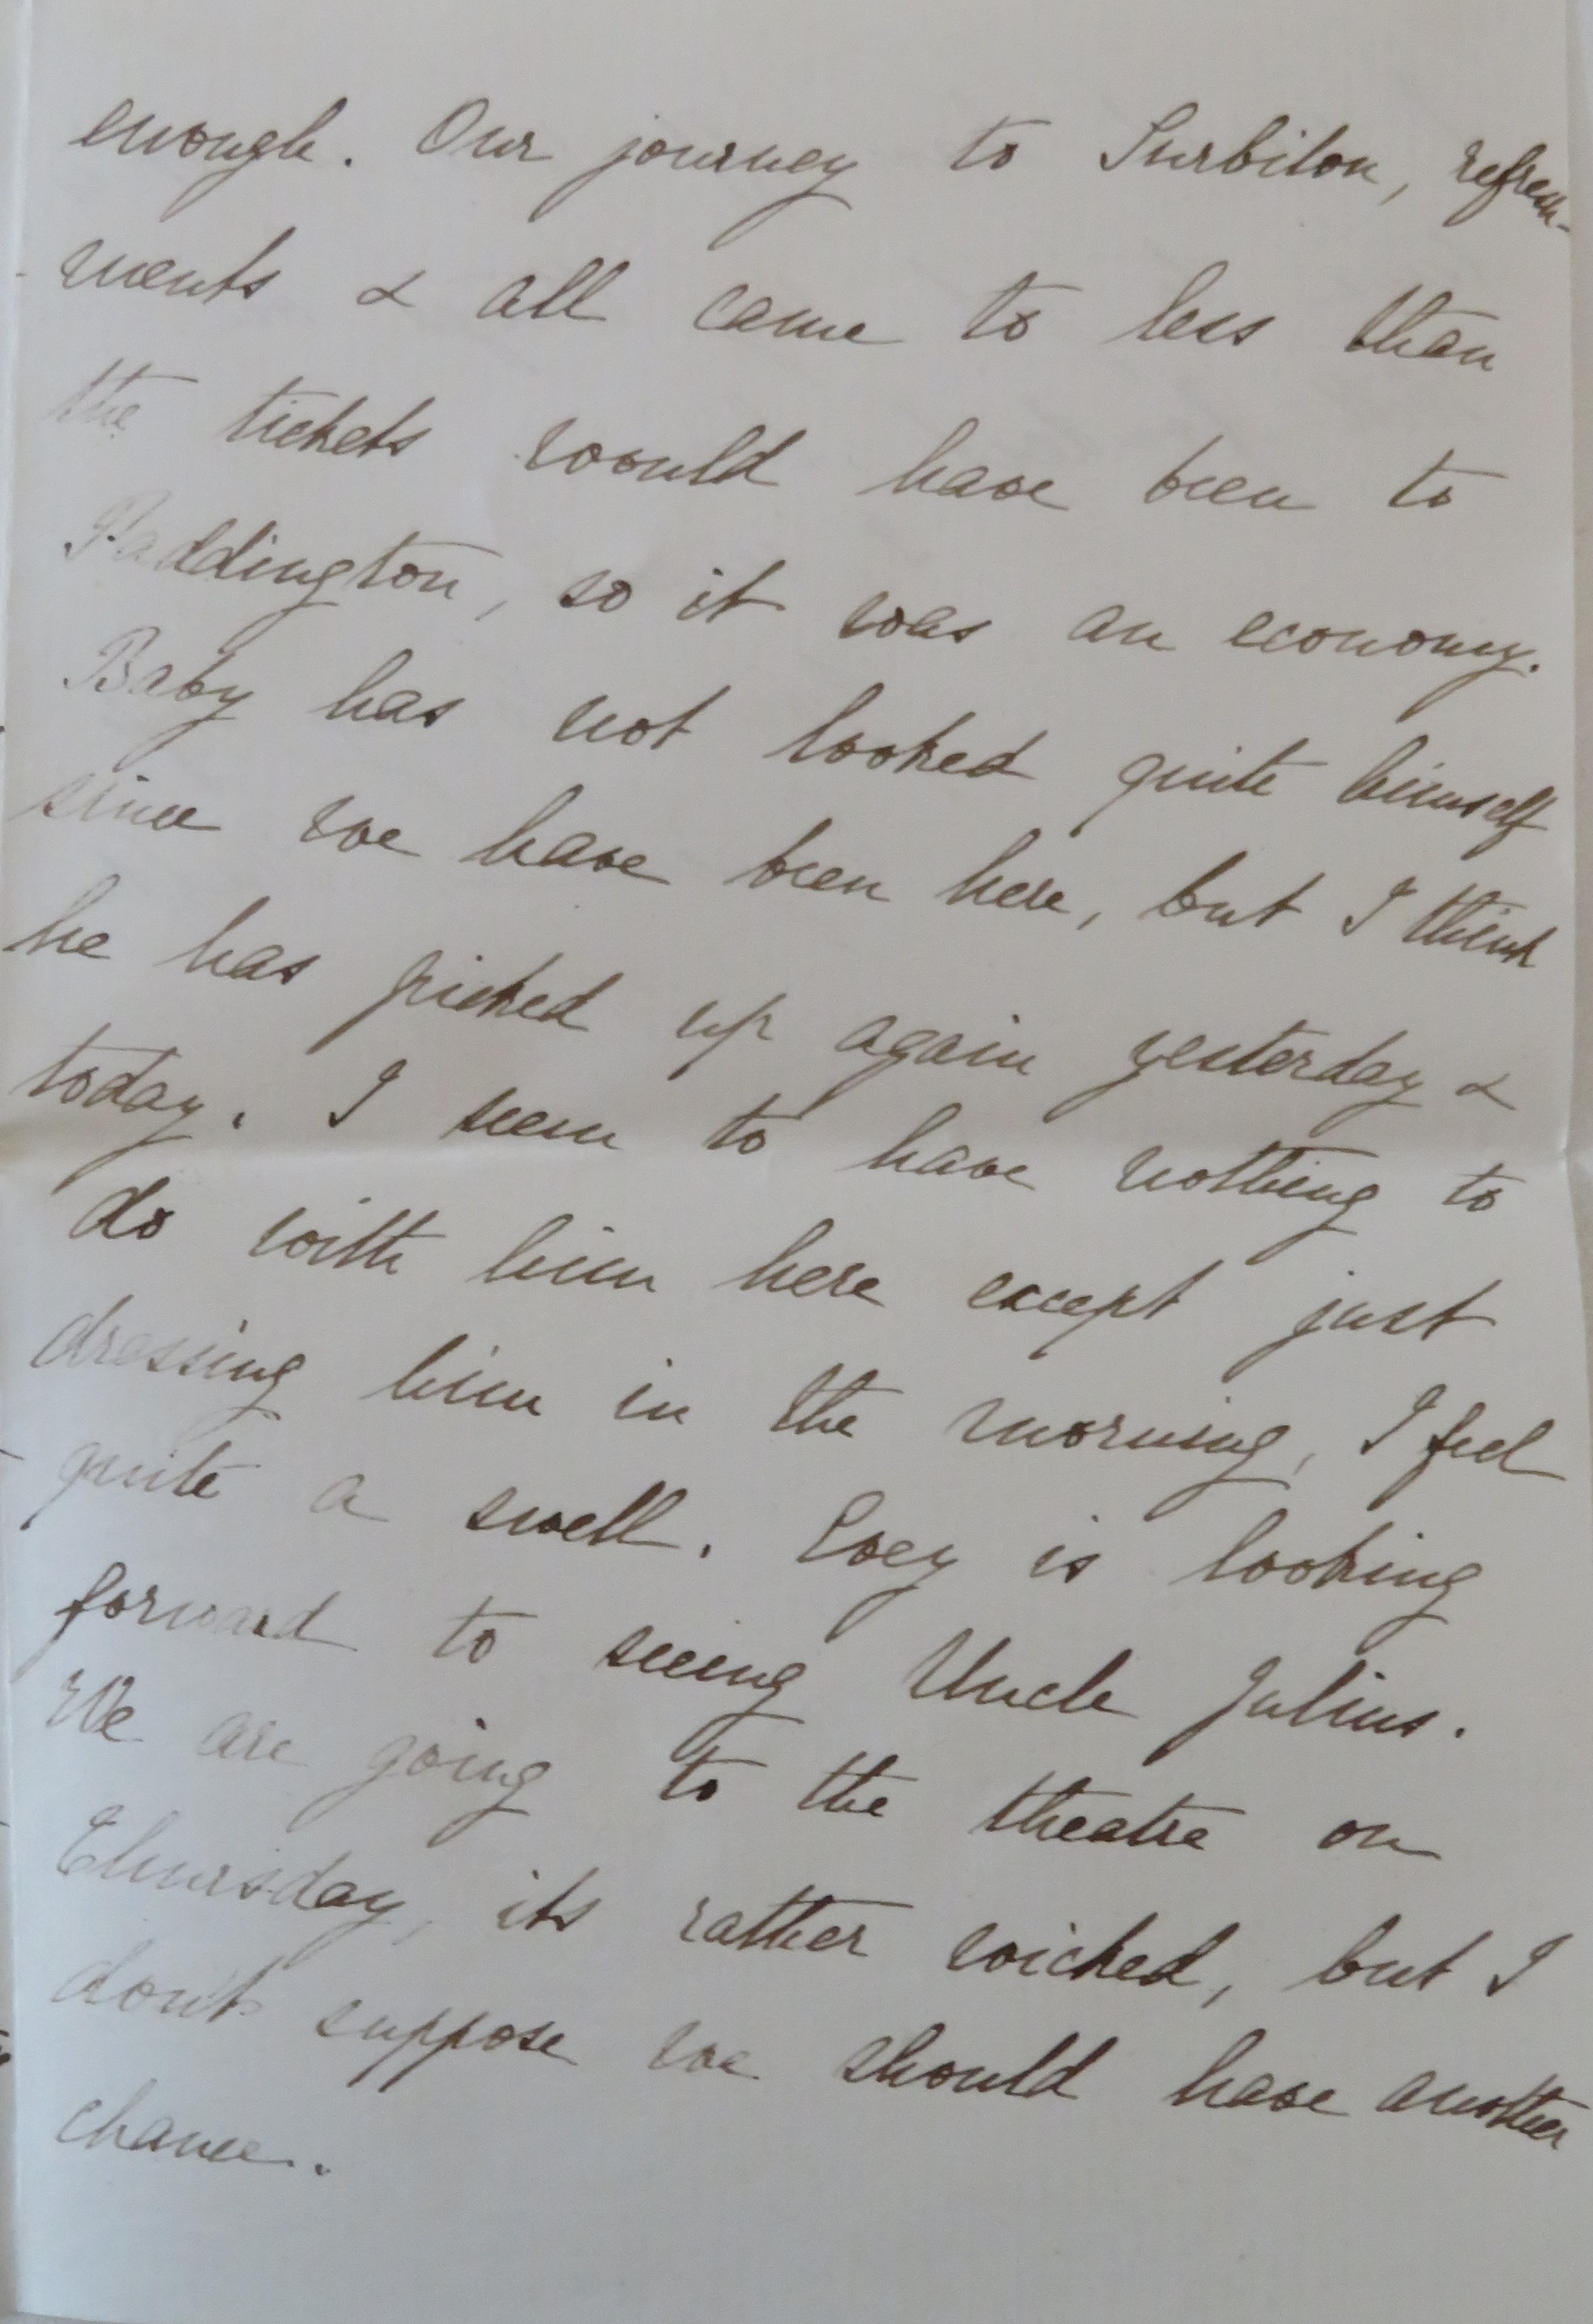 enough. Our journey to Surbiton, refresh-
ments & all came to less than
the tickets would have been to
Paddington, so it was an economy.
Baby has not looked quite himself
since we have been here, but I think
he has picked up again yesterday &
today. I seem to have nothing to
do with him here except just
dressing him in the morning, I feel
quite a swell. Evey is looking
forward to seeing Uncle Julius.
We are going to the theatre on
Thursday, its rather wicked, but I
dont suppose we should have another
chance.